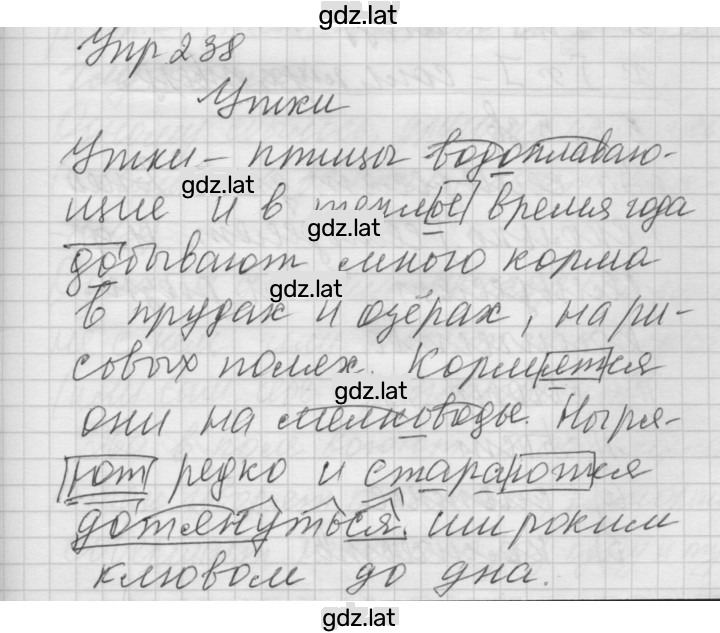 gdz.lat
Упр 238
Утки
Утки – птицы водоплаваю-
gdz.lat
щие и в теплое время года
gdz.lat
добывают много корма
gdz.lat
в прудах и озёрах, на ри-
совых полях. Кормятся
gdz.lat
они на мелководье. Ныря-
ют редко и стараются
gdz.lat
дотянуться широким
клювом до дна.
gdz.lat